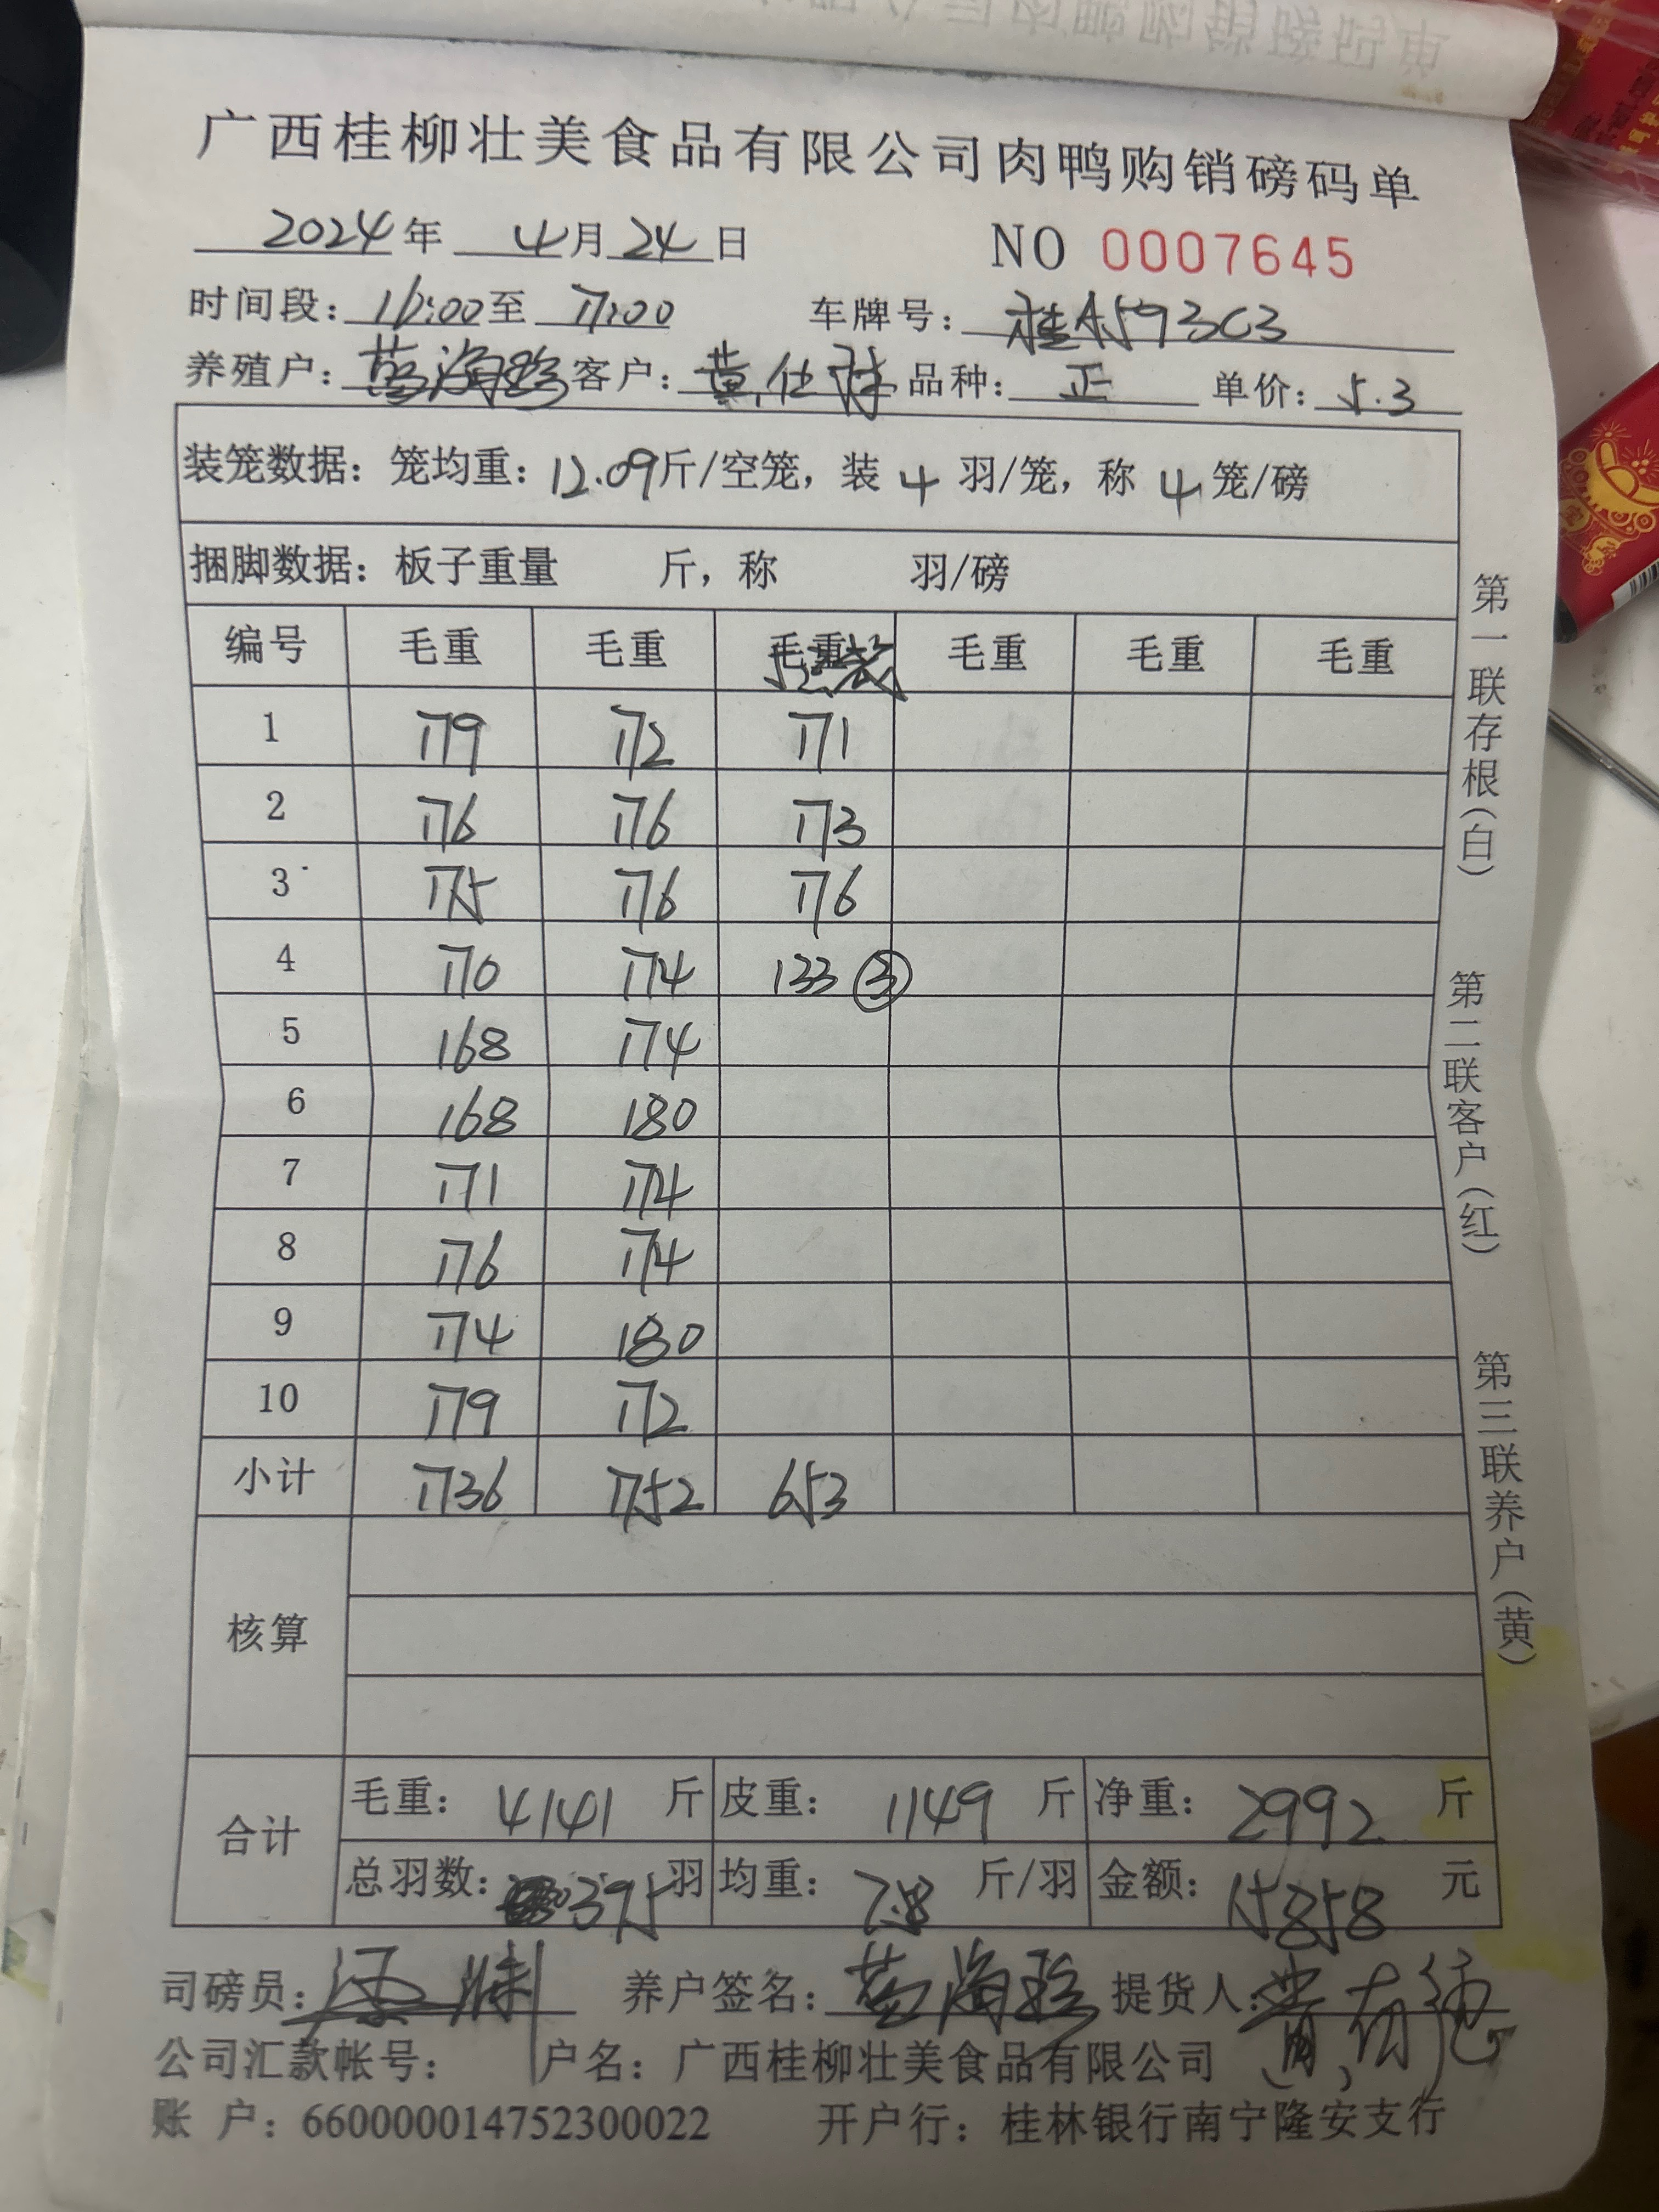 广西桂柳壮美食品有限公司肉鸭购销磅码单
2024年 4月24日 NO 0007645
时间段: 16:00至 17:00 车牌号: 桂A593C3
养殖户: 黄海珍 客户: 黄仕 品种: 正 单价: 5.3
装笼数据: 笼均重: 12.09斤/空笼, 装 4 羽/笼, 称 4 笼/磅
捆脚数据: 板子重量 斤, 称 羽/磅
编号 毛重 毛重 毛重 毛重 毛重 毛重
1 179 172 171
2 176 176 173
3 175 176 176
4 170 174 133 ③
5 168 174
6 168 180
7 171 174
8 176 174
9 174 180
10 179 172
小计 1736 1752 653
核算
合计
毛重: 4141 斤 皮重: 1149 斤 净重: 2992 斤
总羽数: 395 羽 均重: 7.58 斤/羽 金额: 15858 元
司磅员: 养户签名: 黄海珍 提货人:
公司汇款帐号: 户名: 广西桂柳壮美食品有限公司
账 户: 660000014752300022 开户行: 桂林银行南宁隆安支行
第一联存根(白)
第二联客户(红)
第三联养户(黄)